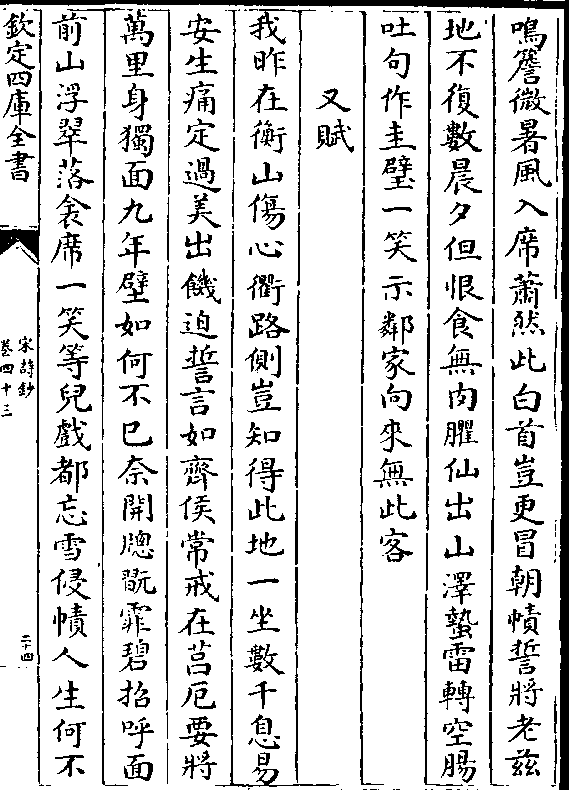 鳴簷微暑風入席蕭然此白首豈更冒朝幘誓將老兹
地不復數晨夕但恨食無肉臞仙出山澤蟄雷轉空腸
吐句作圭璧一笑示鄰家向來無此客
又賦
我昨在衡山傷心衢路側豈知得此地一坐數千息易
安生痛定過美出饑迫誓言如齊侯常戒在莒厄要將
萬里身獨面九年壁如何不已奈開牕翫霏碧招呼面
前山浮翠落衾席一笑等兒戲都忘雪侵幘人生何不
欽定四庫全書
宋詩鈔
卷四十三
二十四